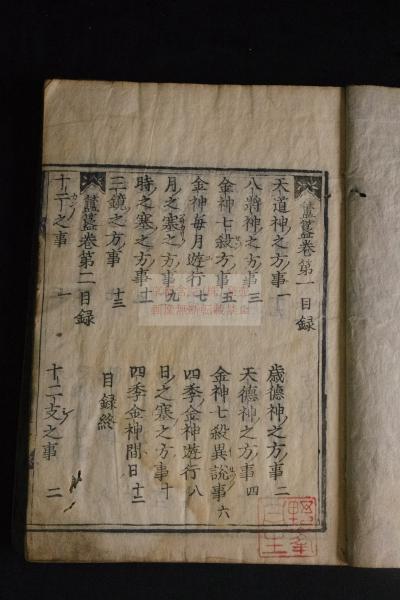 簠簋巻第一目録
天道神之方事一
歳德神之方事二
八將神之方事三
天德神之方事四
金神七殺方事五
金神七殺異説事六
金神毎月遊行七
四季金神遊行八
月之塞之方事九
日之塞之方事十
時之塞之方事十一
四季金神間日十二
三鏡之方事十三
目録終
簠簋巻第二目録
十干之事一
十二支之事二